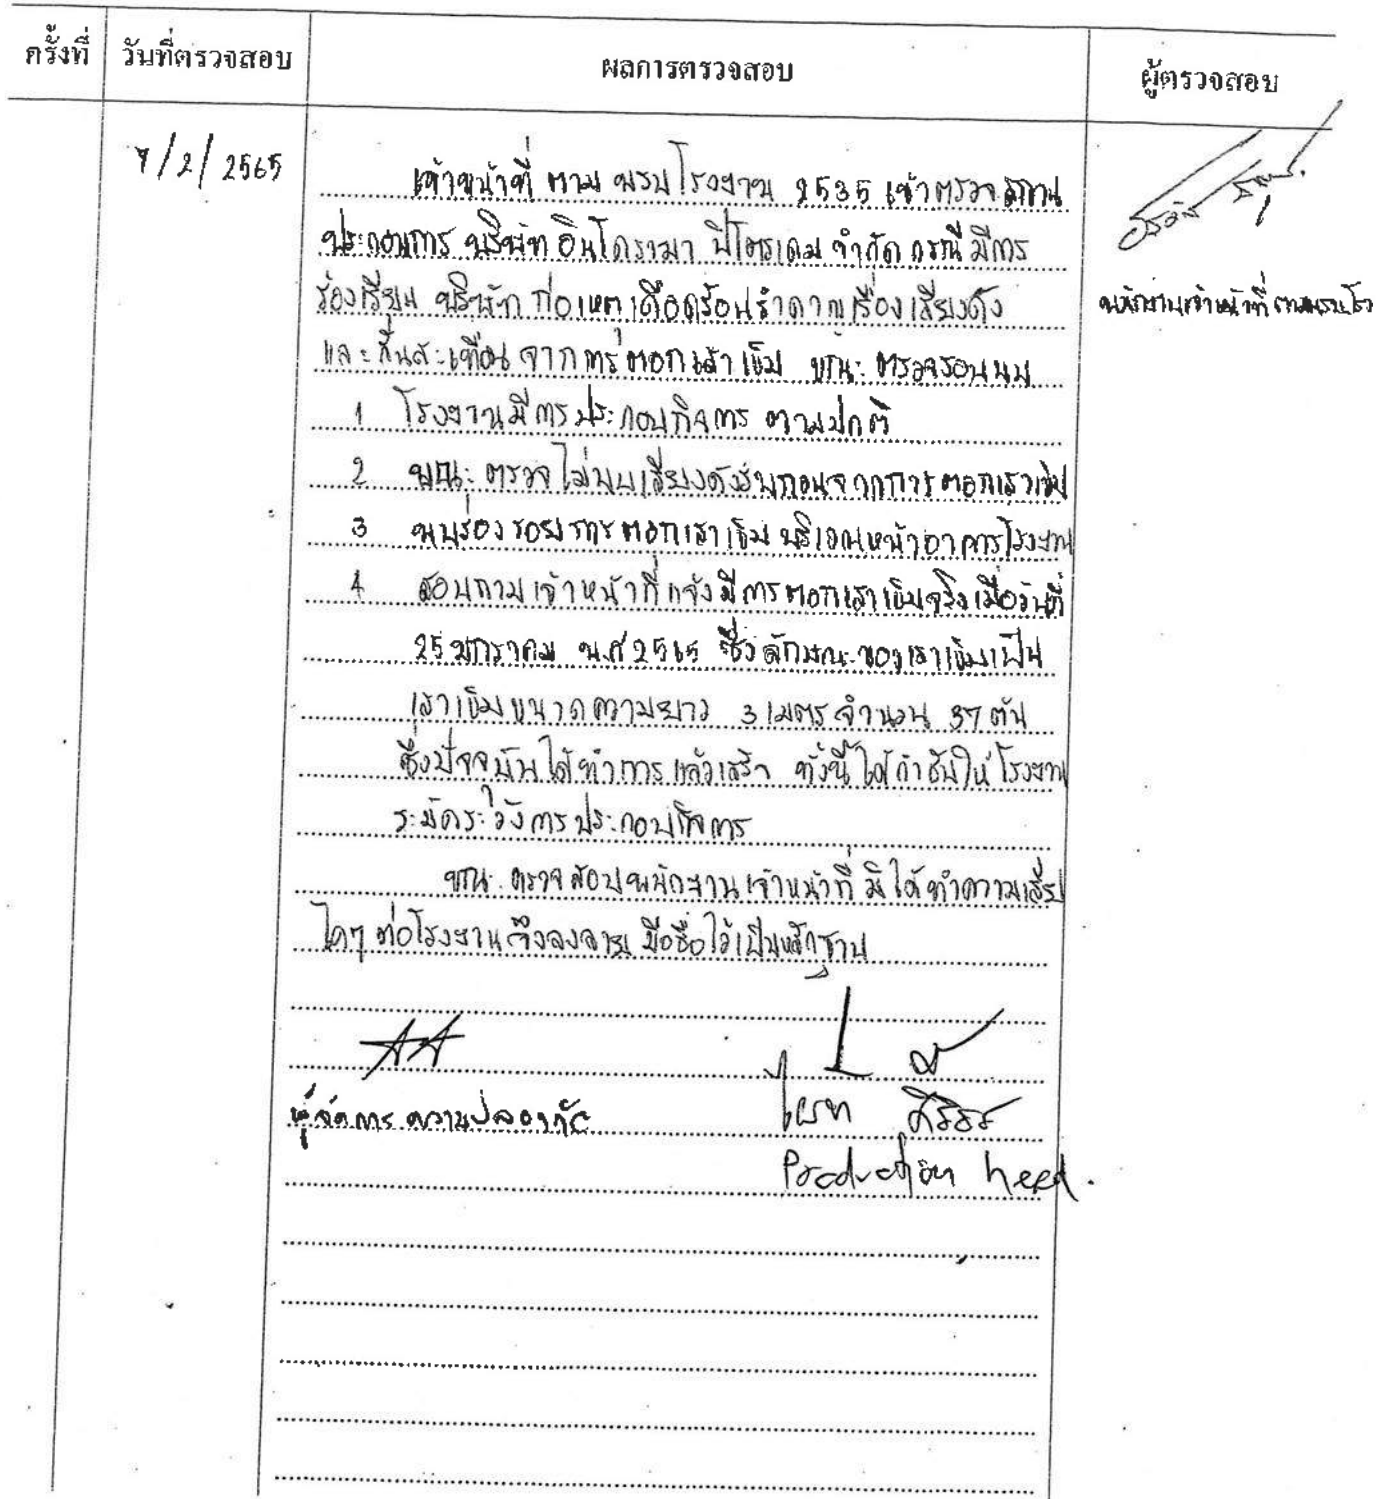 ครั้งที่ วันที่ตรวจสอบ ผลการตรวจสอบ ผู้ตรวจสอบ
7/2/2565
เจ้าหน้าที่ ตาม พรบ โรงงาน 2535 เข้าตรวจสถาน
ประกอบการ บริษัท อินโดรามา ปิโตรเคม จำกัด กรณี มีการ
ร้องเรียน บริษัท ก่อเหตุเดือดร้อนรำคาญเรื่องเสียงดัง
และสั่นสะเทือน จากการตอกเสาเข็ม ขณะตรวจสอบพบ
พนักงานเจ้าหน้าที่ ตามพรบ.โรง
1 โรงงานมีการประกอบกิจการ ตามปกติ
2 ขณะตรวจ ไม่พบเสียงดังรบกวนจากการตอกเสาเข็ม
3 พบร่องรอยการตอกเสาเข็ม บริเวณหน้าอาคารโรงงาน
4 สอบถามเจ้าหน้าที่ แจ้งมีการตอกเสาเข็มจริงเมื่อวันที่
25 มกราคม พ.ศ 2565 ซึ่งลักษณะของเสาเข็มเป็น
เสาเข็มขนาดความยาว 3 เมตร จำนวน 37 ต้น
ซึ่งปัจจุบันได้ทำการแล้วเสร็จ ทั้งนี้ ได้กำชับให้โรงงาน
ระมัดระวังการประกอบกิจการ
ขณะตรวจสอบพนักงานเจ้าหน้าที่ มิได้ทำความเสีย
ใดๆ ต่อโรงงาน จึงลงลายมือชื่อไว้เป็นหลักฐาน
ผู้จัดการความปลอดภัย
Production head.